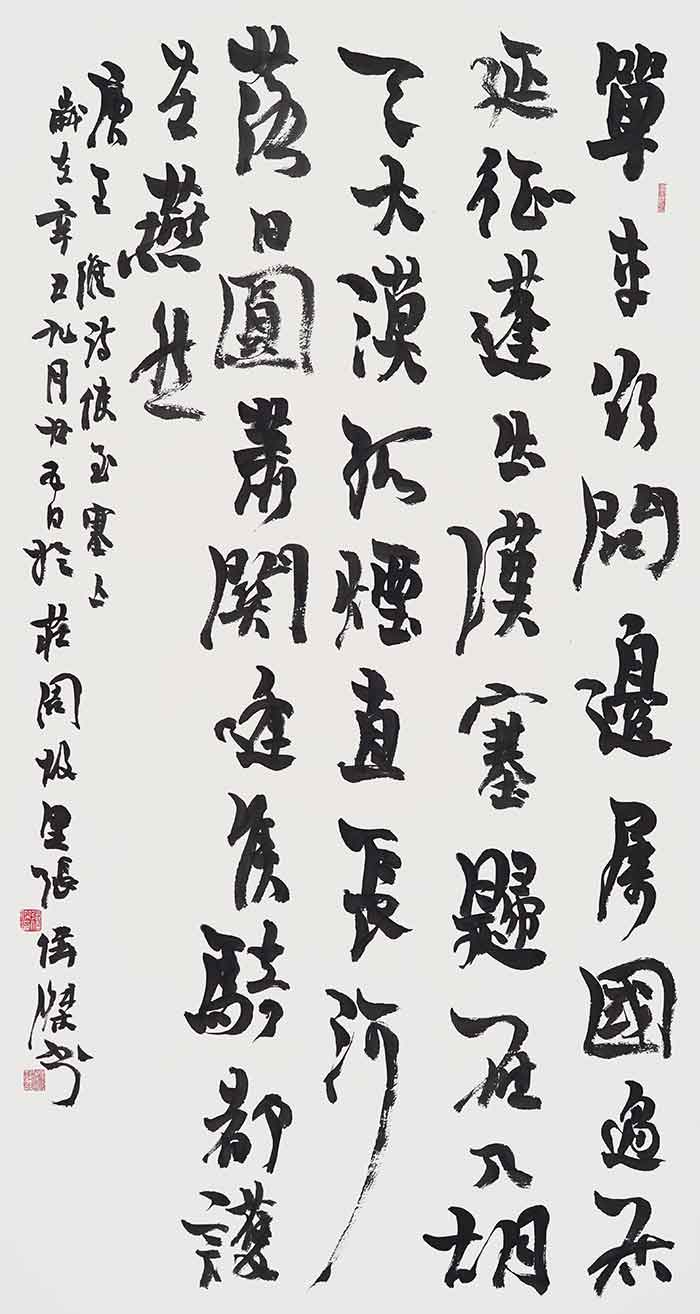 單車欲問邊屬國過居
延征蓬出漢塞歸雁入胡
天大漠孤煙直長河
落日圓蕭關逢候騎都護
在燕然
唐王維詩使至塞上
歲在辛丑九月廿五日於莊周故里張偉傑書